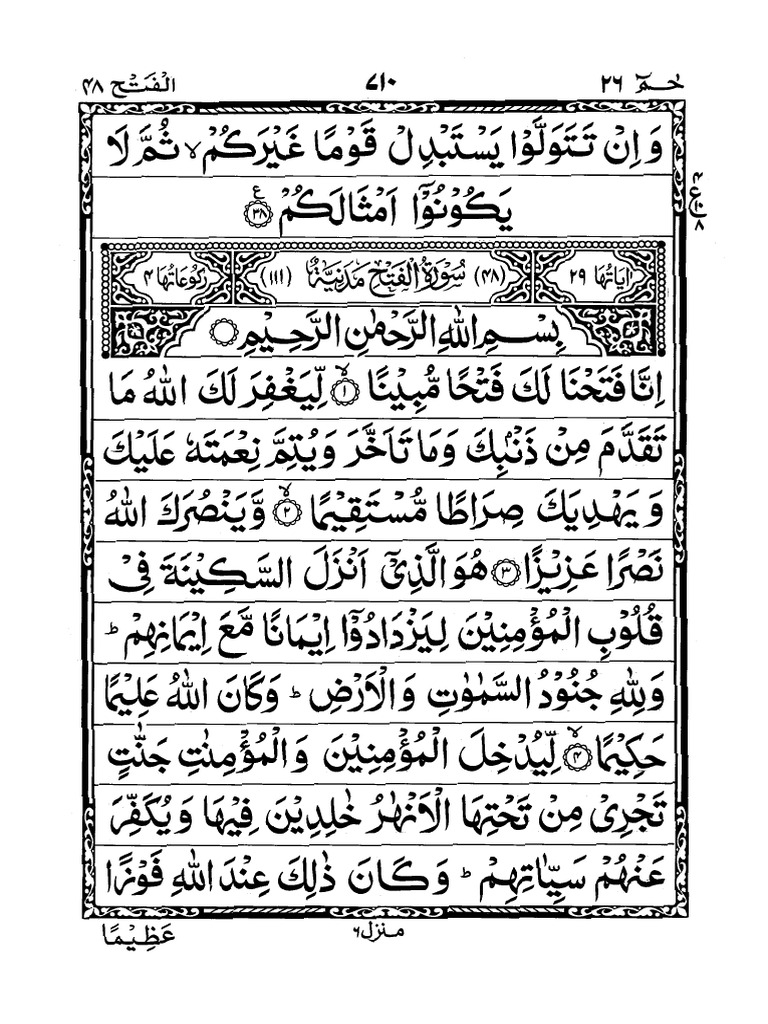 حٰمٓ ٢٦ ٧١٠ الْفَتْح ٤٨
وَاِنْ تَتَوَلَّوْا يَسْتَبْدِلْ قَوْمًا غَيْرَكُمْ ۙ ثُمَّ لَا
يَكُوْنُوْۤا اَمْثَالَكُمْ ﴿٣٨﴾ ع
٤ ع ١٠ ٨
اٰيَاتُهَا ٢٩ (٤٨) سُوْرَةُ الْفَتْحِ مَدَنِيَّةٌ (١١١) رُكُوْعَاتُهَا ٤
بِسْمِ اللهِ الرَّحْمٰنِ الرَّحِيْمِ
اِنَّا فَتَحْنَا لَكَ فَتْحًا مُّبِيْنًا ﴿١﴾ ۙ لِّيَغْفِرَ لَكَ اللهُ مَا
تَقَدَّمَ مِنْ ذَنْۢبِكَ وَمَا تَاَخَّرَ وَيُتِمَّ نِعْمَتَهٗ عَلَيْكَ
وَيَهْدِيَكَ صِرَاطًا مُّسْتَقِيْمًا ﴿٢﴾ ۙ وَّيَنْصُرَكَ اللهُ
نَصْرًا عَزِيْزًا ﴿٣﴾ هُوَ الَّذِيْۤ اَنْزَلَ السَّكِيْنَةَ فِيْ
قُلُوْبِ الْمُؤْمِنِيْنَ لِيَزْدَادُوْۤا اِيْمَانًا مَّعَ اِيْمَانِهِمْ ؕ
وَلِلّٰهِ جُنُوْدُ السَّمٰوٰتِ وَالْاَرْضِ ؕ وَكَانَ اللهُ عَلِيْمًا
حَكِيْمًا ﴿٤﴾ ۙ لِّيُدْخِلَ الْمُؤْمِنِيْنَ وَالْمُؤْمِنٰتِ جَنّٰتٍ
تَجْرِيْ مِنْ تَحْتِهَا الْاَنْهٰرُ خٰلِدِيْنَ فِيْهَا وَيُكَفِّرَ
عَنْهُمْ سَيِّاٰتِهِمْ ؕ وَكَانَ ذٰلِكَ عِنْدَ اللهِ فَوْزًا
منزل ٦ عَظِيْمًا